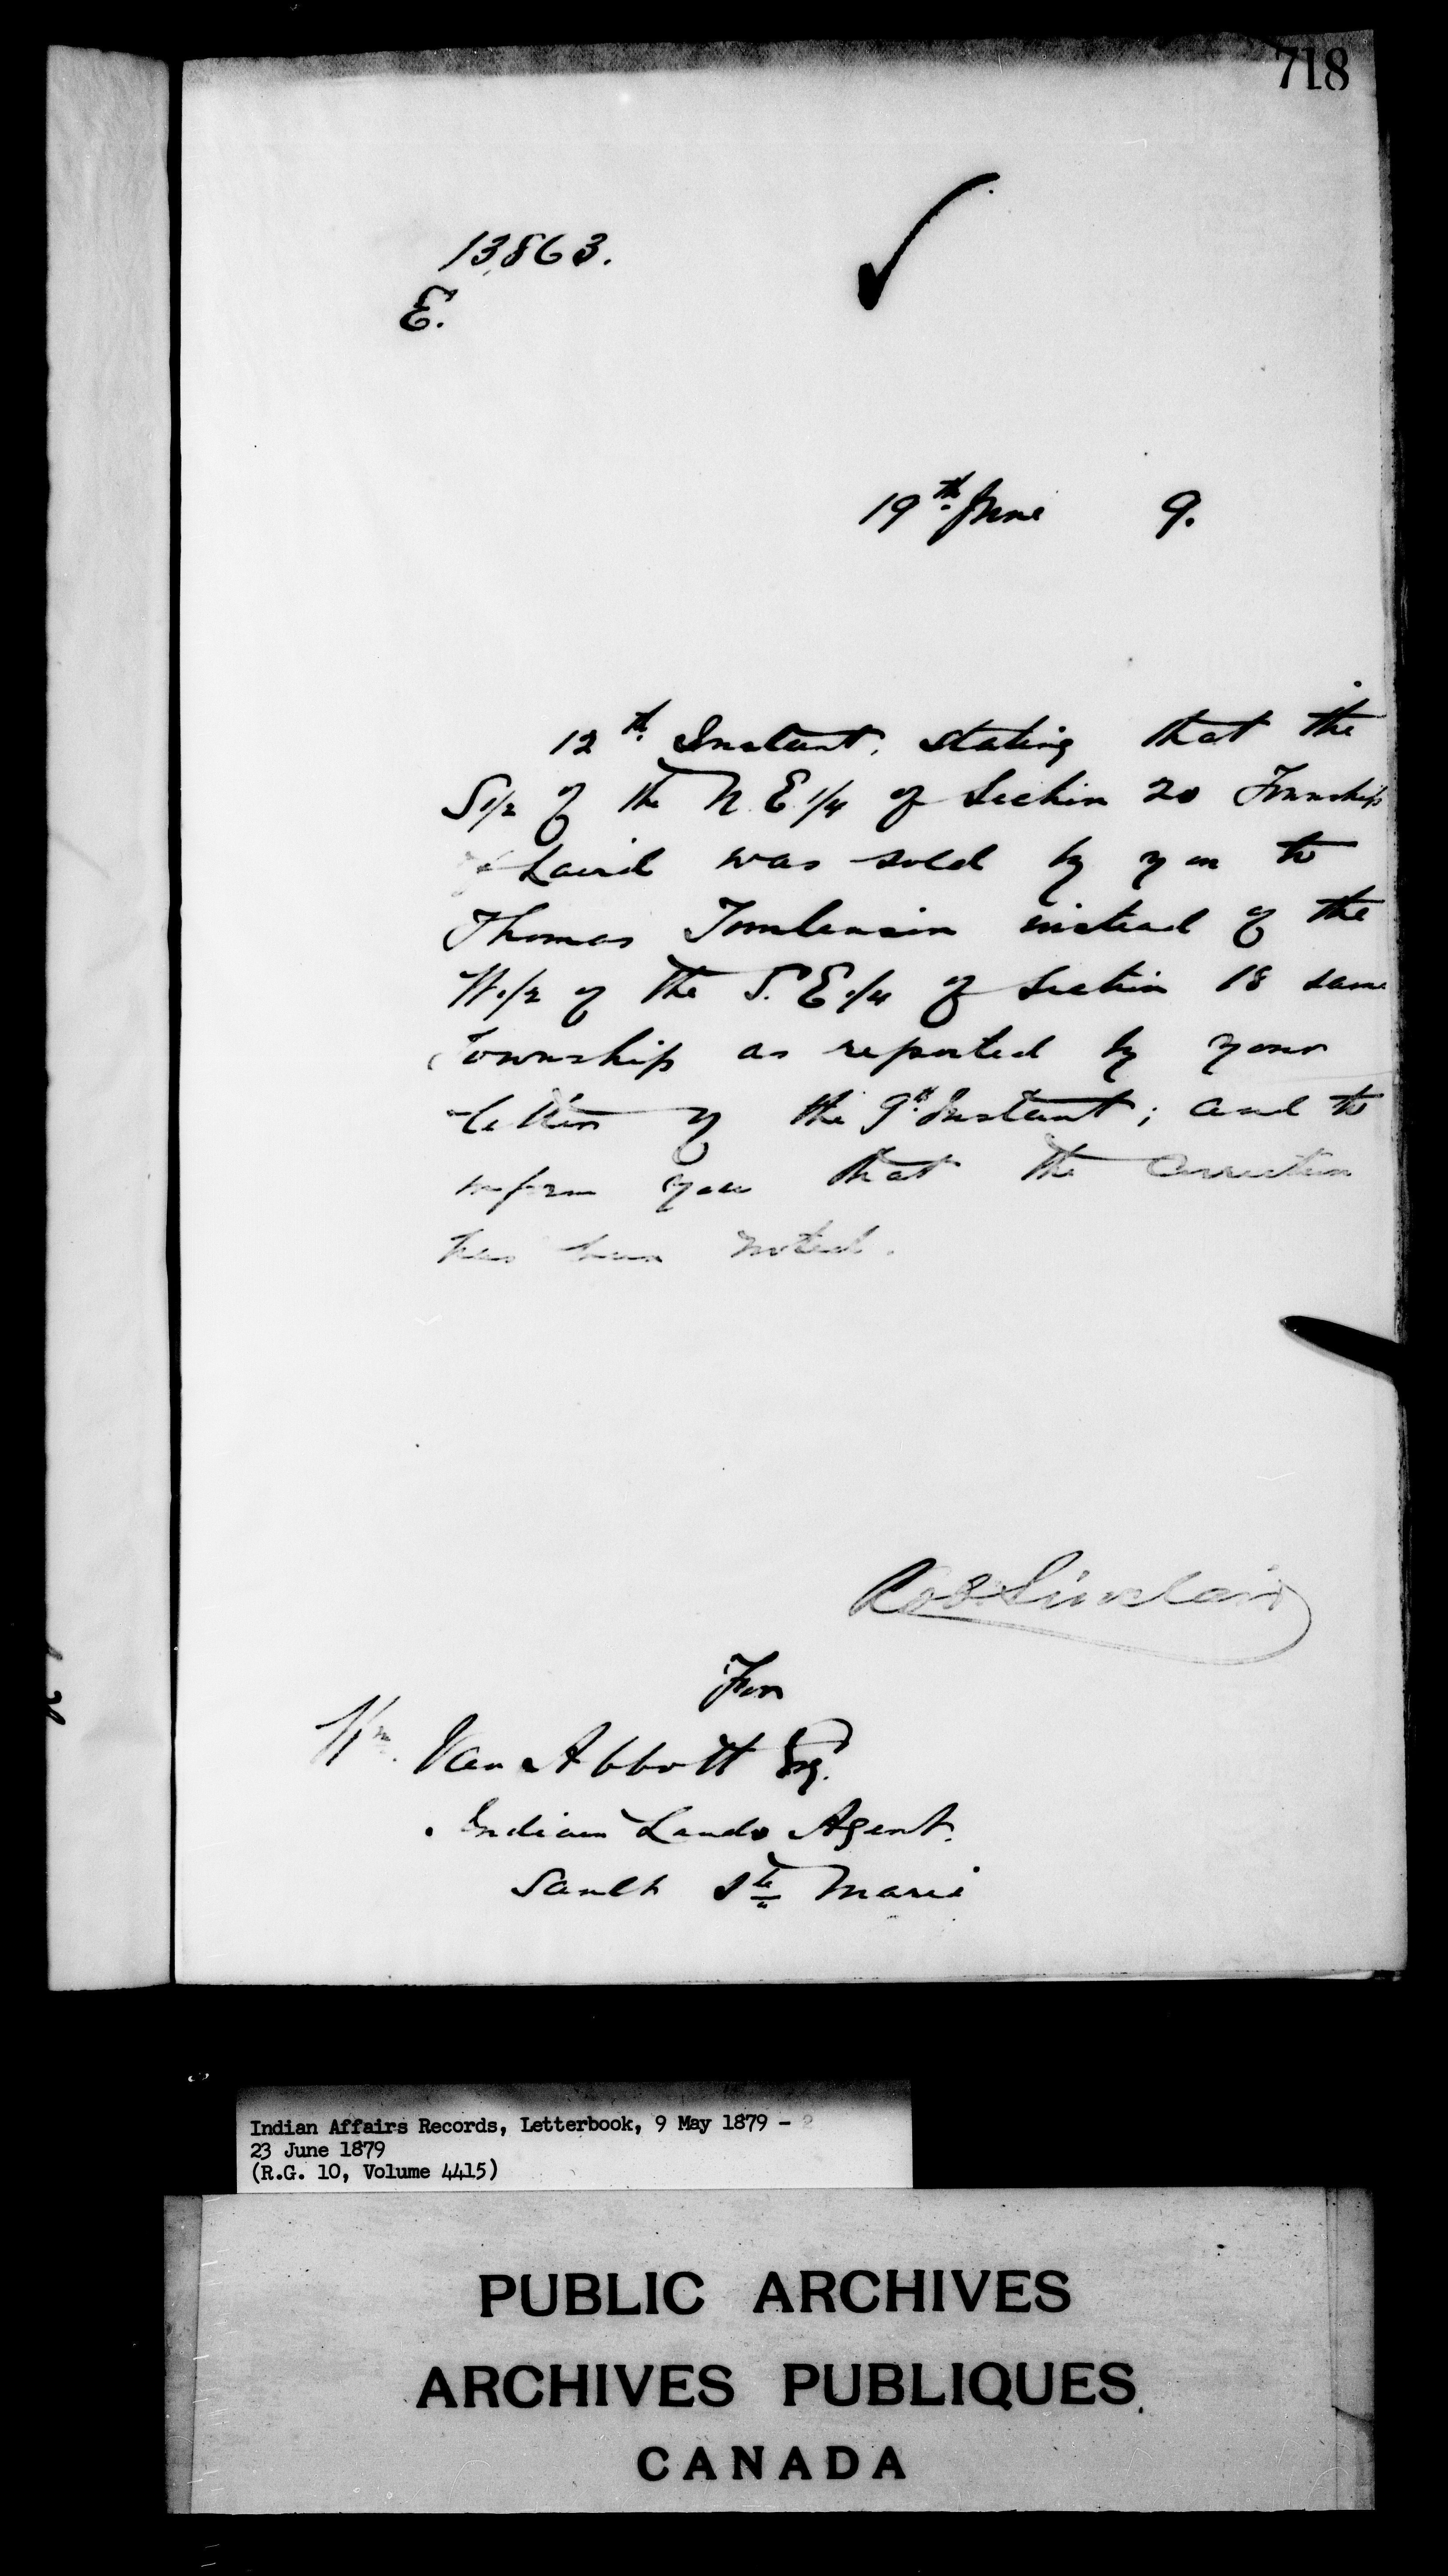 718
13863.
E.
19th June 9.
12th Instant, stating that the
S1/2 of the N. E 1/4 of Section 20 Township
of Laird was sold by you to
Thomas Tomlinson instead of the
W.1/2 of the S. E 1/4 of Section 18 same
Township as reported by your
letter of the 9th Instant; and to
inform you that the correction
has been noted.
Rob. Sinclair
For
Wm. Van Abbott Esq.
Indian Lands Agent.
Sault Ste Marie
Indian Affairs Records, Letterbook, 9 May 1879 - 2
23 June 1879
(R.G. 10, Volume 4415)
PUBLIC ARCHIVES
ARCHIVES PUBLIQUES
CANADA